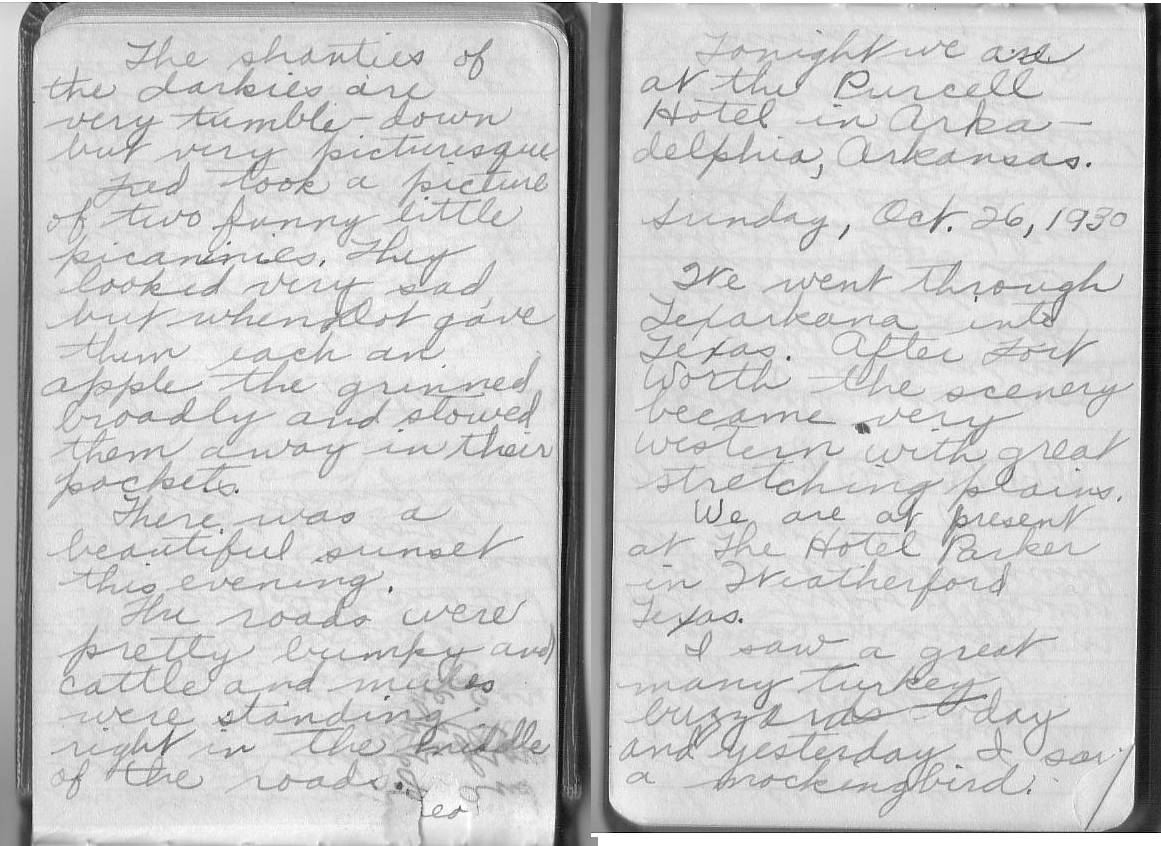 The shanties of
the darkies are
very tumble-down
but very picturesque
Ted took a picture
of two funny little
picaninies. They
looked very sad,
but when Dot gave
them each an
apple the grinned
broadly and stowed
them away in their
pockets.
There was a
beautiful sunset
this evening.
The roads were
pretty bumpy and
cattle and mules
were standing
right in the middle
of the roads.
Tonight we are
at the Purcell
Hotel in Arka-
delphia, Arkansas.
Sunday, Oct. 26, 1930
We went through
Texarkana into
Texas. After Fort
Worth the scenery
became very
western with great
stretching plains.
We are at present
at The Hotel Parker
in Weatherford
Texas.
I saw a great
many turkey
buzzards today
and yesterday I saw
a mockingbird.